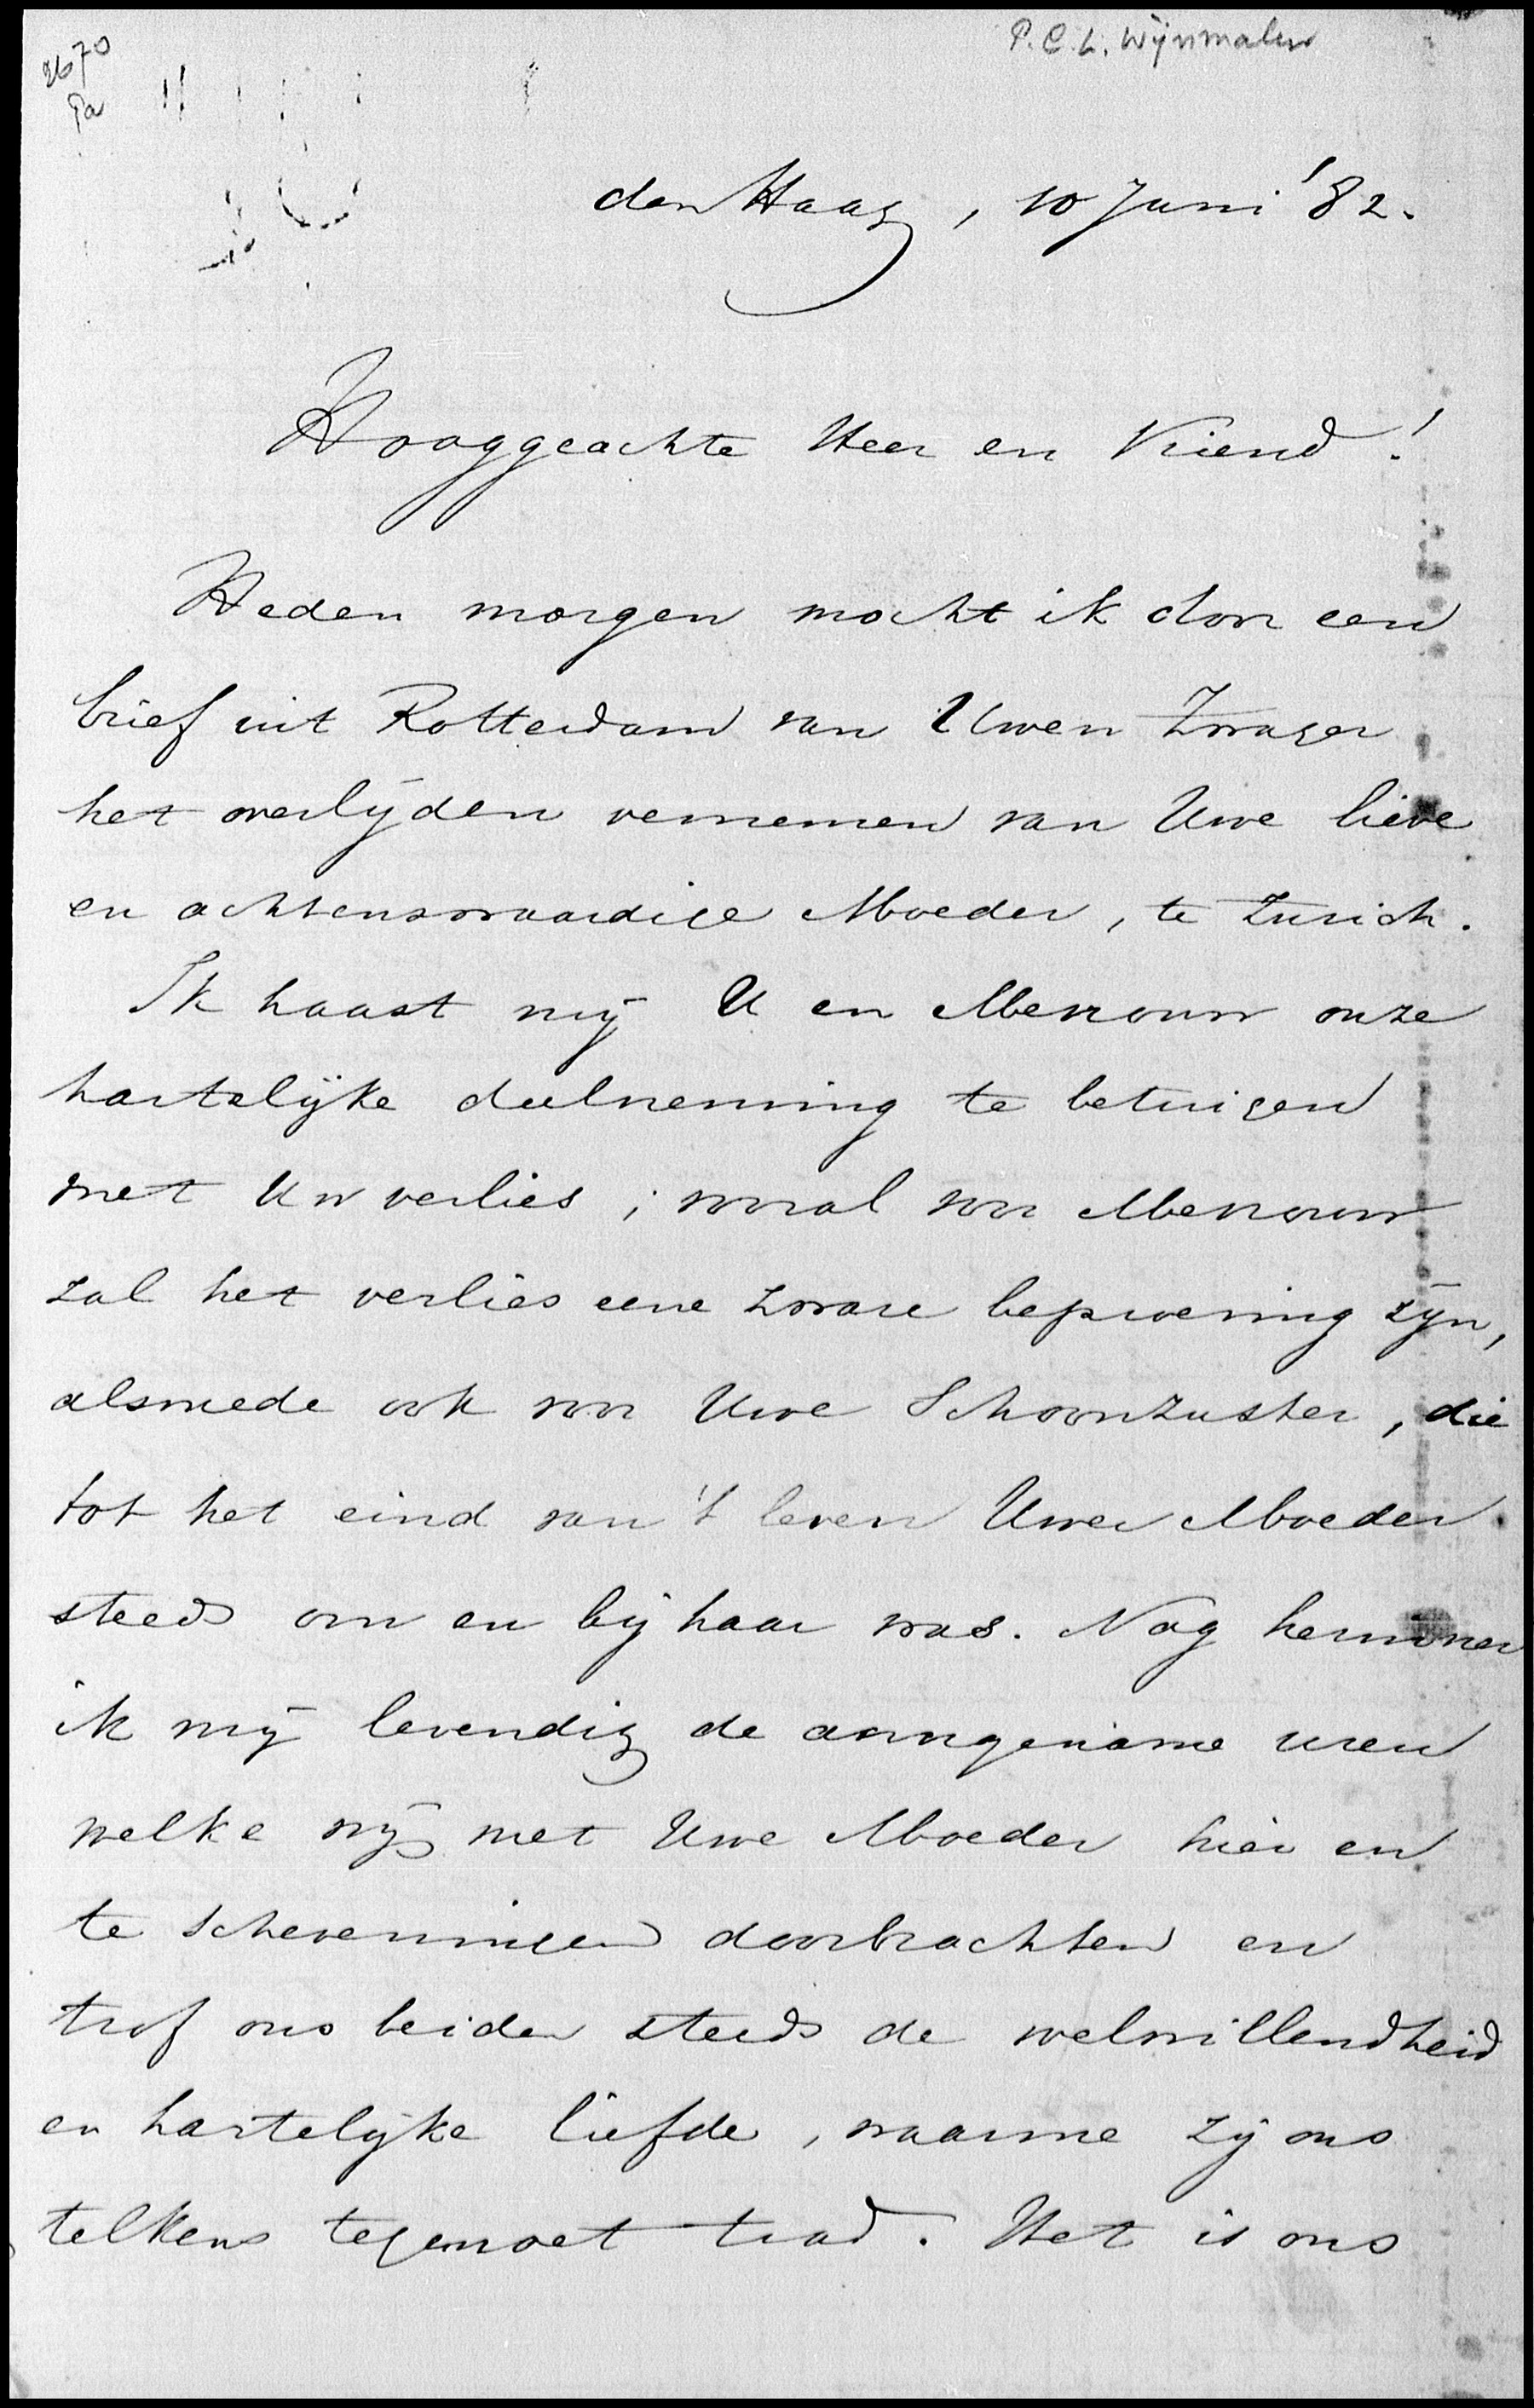 P.C.L. Wijnmalen
den Haag, 10 Juni '82.
Hooggeachte Heer en Vriend!
Heden morgen mocht ik door een
brief uit Rotterdam van Uwen Zwager
het overlijden vernemen van Uwe lieve
en achtenswaardige Moeder, te Zurich.
Ik haast mij U en Mevrouw onze
hartelijke deelneming te betuigen
met Uw verlies; vooral voor Mevrouw
zal het verlies eene zware beproeving zijn,
alsmede ook voor Uwe Schoonzuster, die
tot het eind van 't leven Uwer Moeder
steeds om en bij haar was. Nog herinner
ik mij levendig de aangename uren
welke wij met Uwe Moeder hier en
te Scheveningen doorbrachten en
trof ons beiden steeds de welwillendheid
en hartelijke liefde, waarme zij ons
telkens tegemoet trad. Het is ons